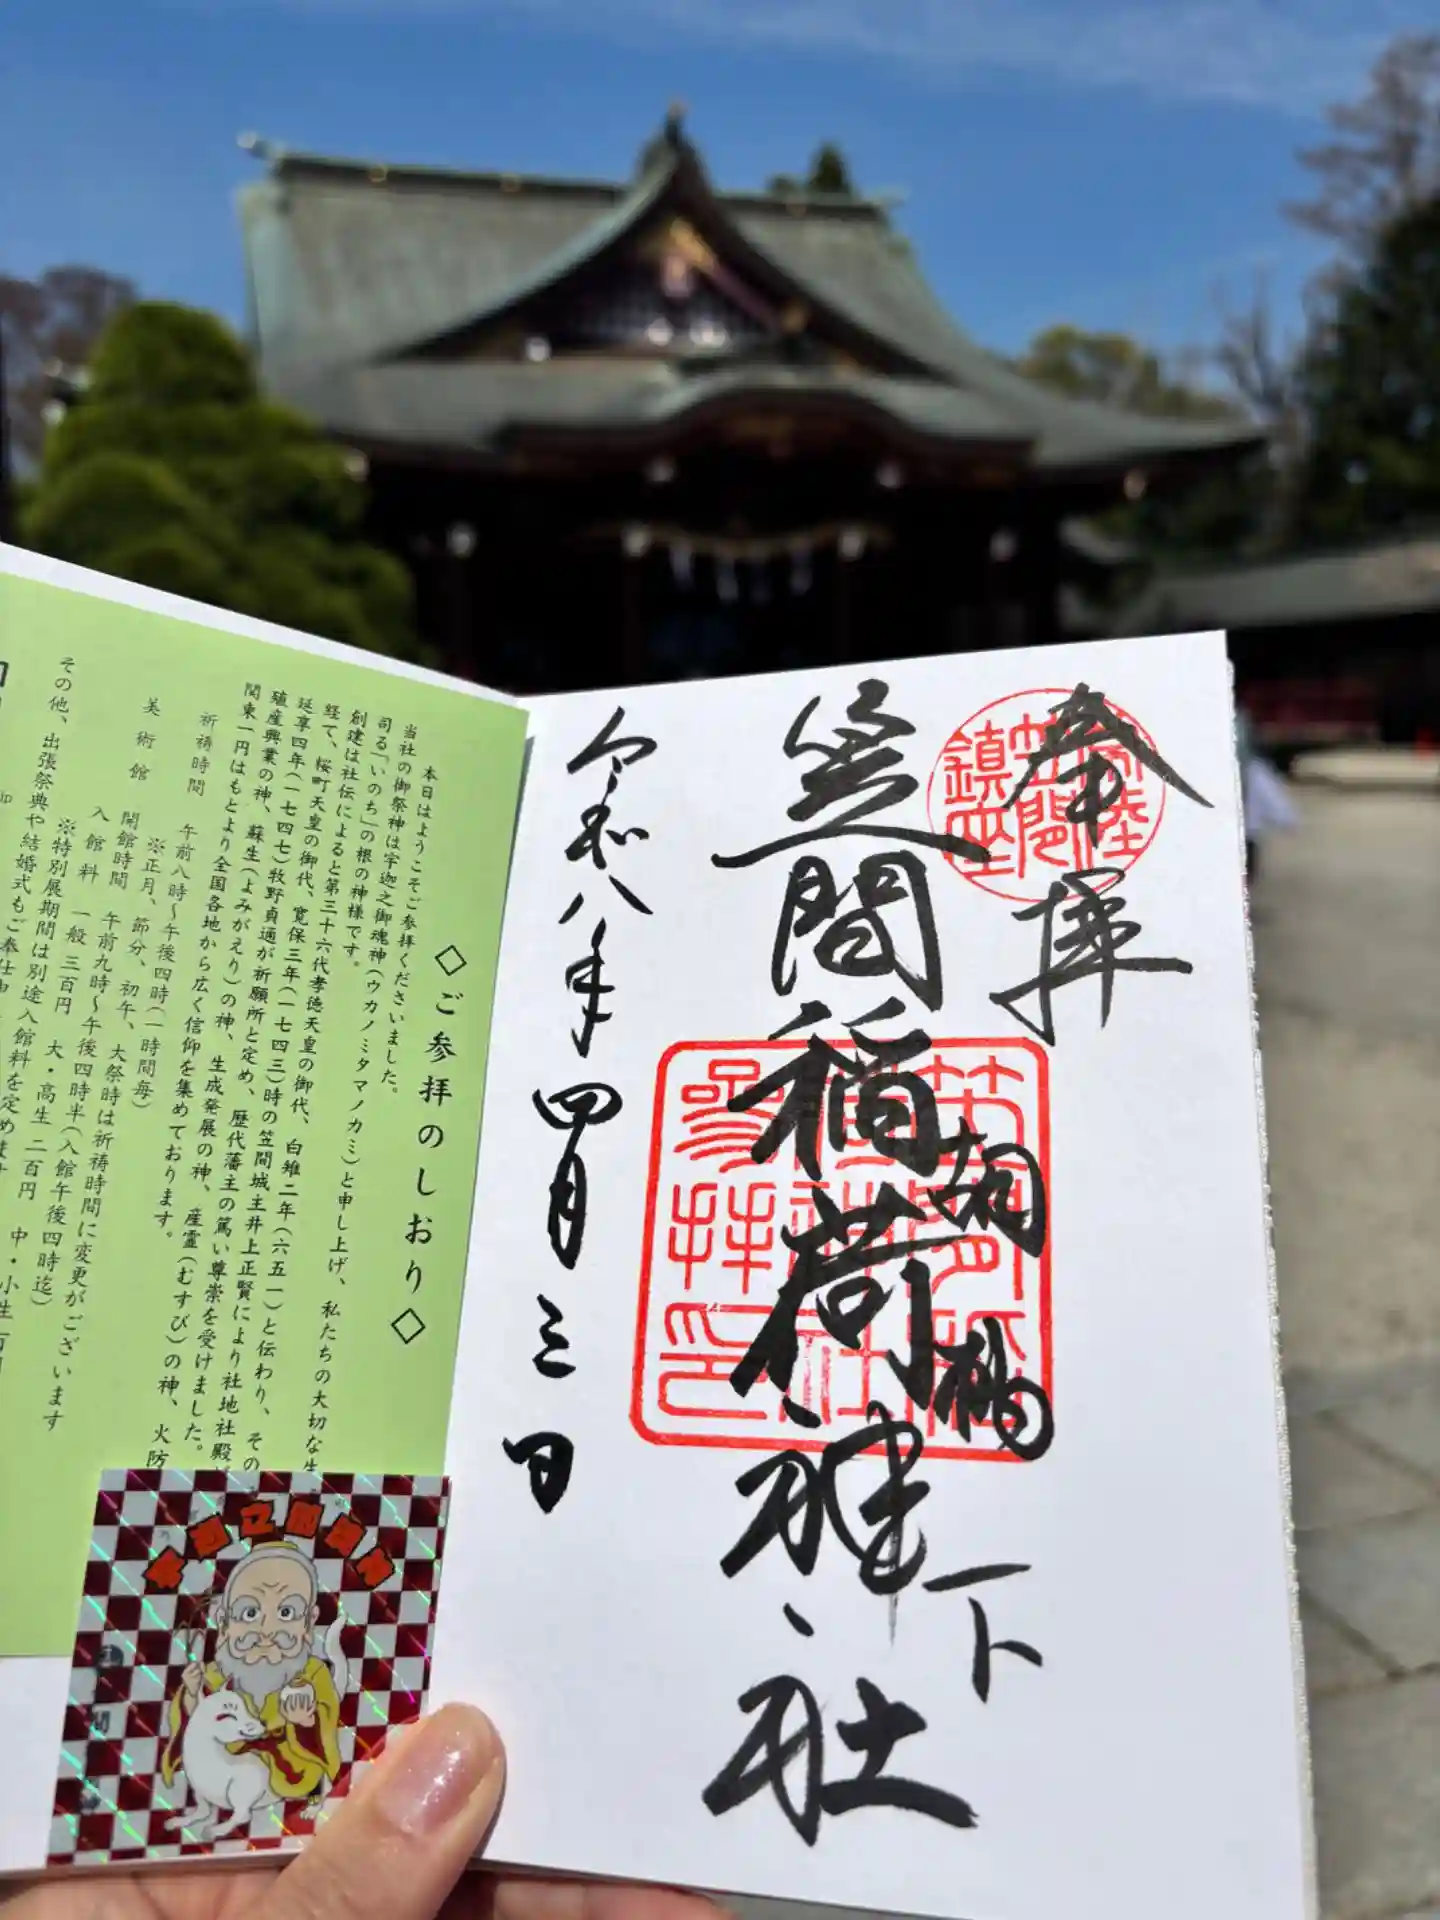 奉拝
常陸
笠間
鎮座
笠間稲荷神社
胡桃下
笠間稲
荷神社
参拝印
令和八年四月三日
◇ご参拝のしおり◇
本日はようこそご参拝くださいました。
当社の御祭神は宇迦之御魂神(ウカノミタマノカミ)と申し上げ、私たちの大切な生
司る「いのち」の根の神様です。
創建は社伝によると第三十六代孝徳天皇の御代、白雉二年(六五一)と伝わり、その
経て、桜町天皇の御代、寛保三年(一七四三)時の笠間城主井上正賢により社地社殿
延享四年(一七四七)牧野貞通が祈願所と定め、歴代藩主の篤い尊崇を受けました。
殖産興業の神、蘇生(よみがえり)の神、生成発展の神、産霊(むすび)の神、火防
関東一円はもとより全国各地から広く信仰を集めております。
祈祷時間 午前八時~午後四時(一時間毎)
※正月、節分、初午、大祭時は祈祷時間に変更がございます
美術館 開館時間 午前九時~午後四時半(入館午後四時迄)
入館料 一般 三百円 大・高生 二百円 中・小生 百円
※特別展期間は別途入館料を定めます
その他、出張祭典や結婚式もご奉仕申